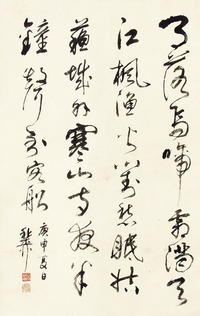 月落烏啼霜滿天
江楓漁火對愁眠姑
蘇城外寒山寺夜半
鐘聲到客船
庚申夏日